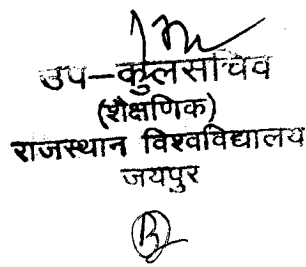 उप-कुलसचिव
(शैक्षणिक)
राजस्थान विश्वविद्यालय
जयपुर